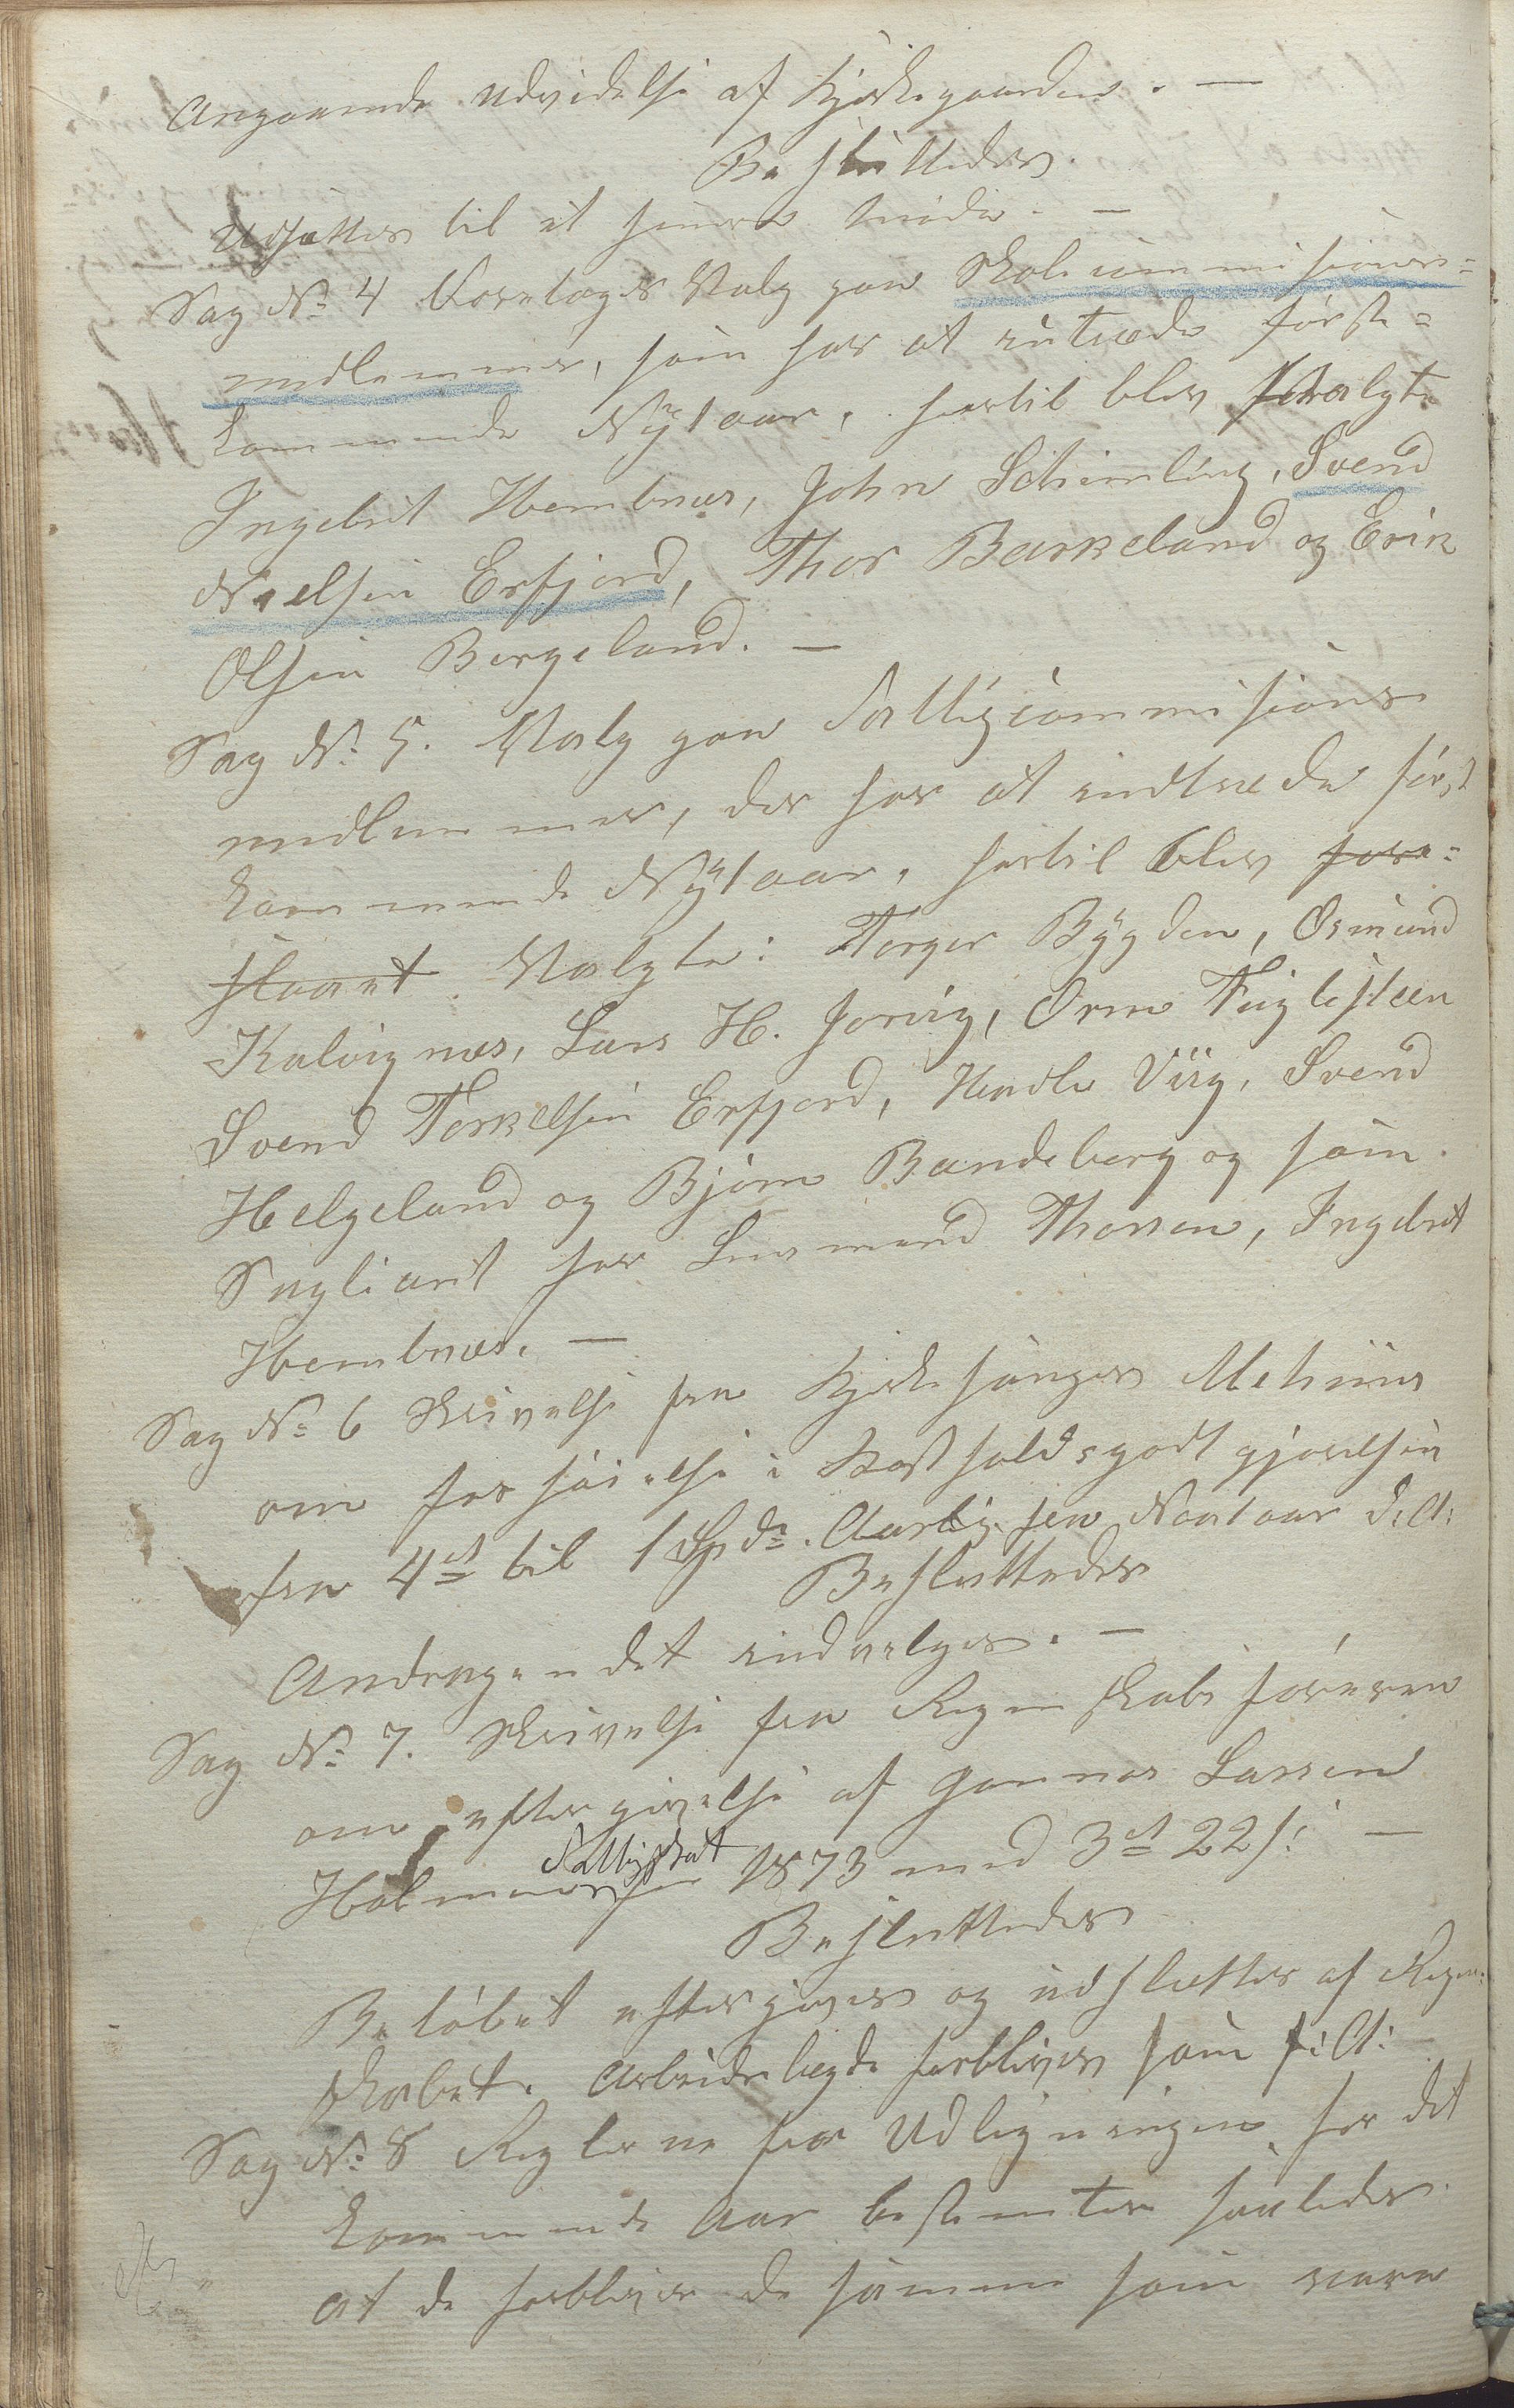 Angaaende udvidelse af Kjirkegaarden. —
Besluttedes.
Udsættes til et senere Møde. —
Sag No 4 Foretoges Valg paa Skolecommisions=
medlemmer, som har at intræde første=
kommende Nÿtaar, hertil blev Valgte
Ingebret Hembnes, John Schimling, Svend
Nielsen Erfjord, Thor Barkeland og Erik
Olsen Bergeland. —
Sag No 5. Valg paa Fattigcommisions
medlemmer, der har at indtræde først
kommende Nÿtaar, hertil blev fore=
slaaet Valgte: Torger Bÿgden, Osmund
Kalvignes, Lars H. Jorvig, Orm Fuglesteen
Svend Torkelsen Erfjord, Hendle Viig, Svend
Helgeland og Bjørn Bandeberg og som
Supliant for Lensmand Thorsen, Ingebret
Hembnes. —
Sag No 6 Skrivelse fra Kjirkesanger Mehuus
om forhøielse i Kostholdsgodtgjørelsen
fra 4 ort til 1 Spd. Aarlig fra Nÿtaar d.A:
Besluttedes
Andragendet indvelges. —
Sag No 7. Skrivelse fra Regnskabsføreren
om eftergivelse af Gunnar Larsen
Holmens Fattigskat for 1873 med 3 ort 22 s: —
Besluttedes
Beløbet eftergives og udslettes af Regn=
skabet. Arbeidslægde forbliver som f:A:
Sag No 8 Reglerne for Udligningen for det
kommende Aar bestemtes saaledes
at de forbliver de samme som vare